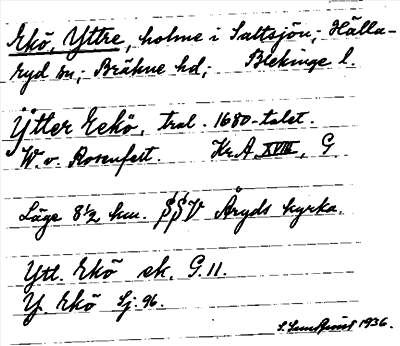 Ekö, Yttre, holme i Saltsjön; Hälla-
ryd sn; Bräkne hd; Blekinge l.
Ytter Eekö, trol. 1680-talet.
W. v. Rosenfelt. Kr.A. XVIII, G.
Läge 8½ km. SSV Åryds kyrka.
Ytt. Ekö ek. G. 11.
Y. Ekö Sj. 96.
S. Sundquist 1936.